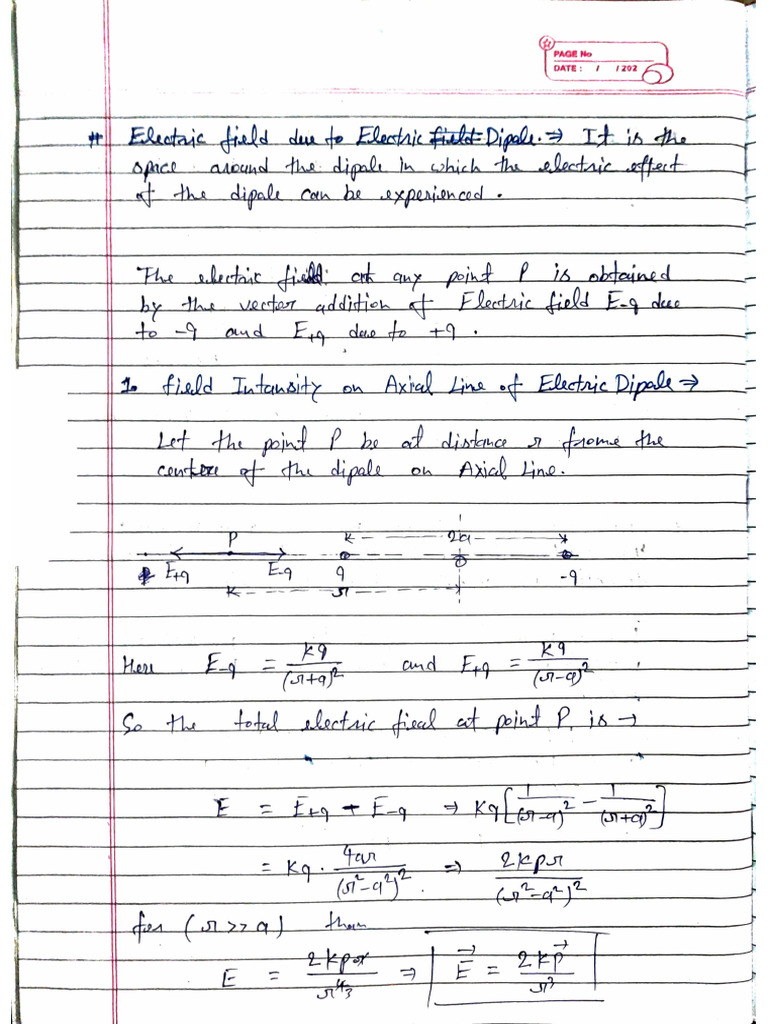 PAGE No
DATE : / / 202
# Electric field due to Electric field Dipale. ⇒ It is the
space around the dipale in which the electric effect
of the dipale can be experienced.
The electric field at any point P is obtained
by the vector addition of Electric field E-q due
to -q and E+q due to +q.
1. field Intansity on Axial Line of Electric Dipale ⇒
Let the point P be at distance r frome the
centere of the dipale on Axial Line.
P 2a
E+q E-q q O -q
r
Here E-q = kq/(r+a)² and E+q = kq/(r-a)²
So the total electric fieal at point P, is →
E = E+q - E-q ⇒ kq[1/(r-a)² - 1/(r+a)²]
= kq · 4ar/(r²-a²)² ⇒ 2kpr/(r²-a²)²
for (r >> a) than
E = 2kpr/r⁴3 ⇒ E⃗ = 2kp⃗/r³